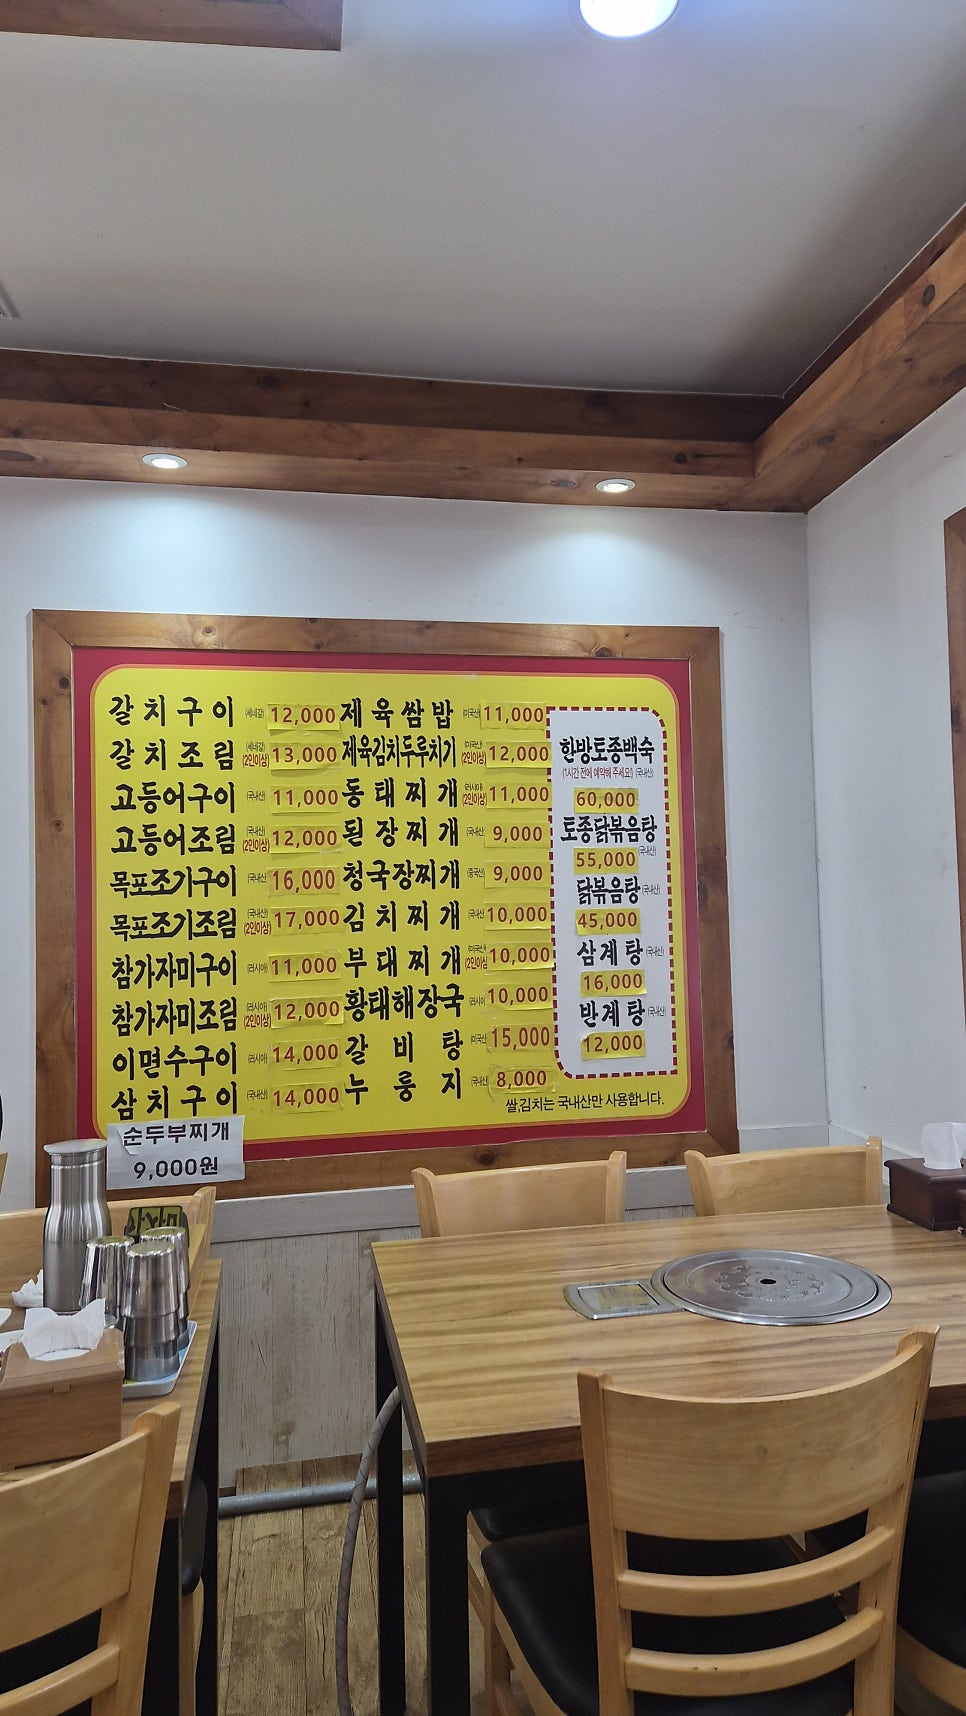 갈치구이 (세네갈) 12,000
갈치조림 (세네갈) (2인이상) 13,000
고등어구이 (국내산) 11,000
고등어조림 (국내산) (2인이상) 12,000
목포조기구이 (국내산) 16,000
목포조기조림 (국내산) (2인이상) 17,000
참가자미구이 (러시아) 11,000
참가자미조림 (러시아) (2인이상) 12,000
이면수구이 (러시아) 14,000
삼치구이 (국내산) 14,000
순두부찌개
9,000원
제육쌈밥 (미국산) 11,000
제육김치두루치기 (미국산) (2인이상) 12,000
동태찌개 (러시아) (2인이상) 11,000
된장찌개 (국내산) 9,000
청국장찌개 (중국산) 9,000
김치찌개 (국내산) 10,000
부대찌개 (미국산) (2인이상) 10,000
황태해장국 (러시아) 10,000
갈비탕 (미국산) 15,000
누룽지 (국내산) 8,000
한방토종백숙
(1시간 전에 예약해 주세요!) (국내산)
60,000
토종닭볶음탕 (국내산)
55,000
닭볶음탕 (국내산)
45,000
삼계탕 (국내산)
16,000
반계탕 (국내산)
12,000
쌀,김치는 국내산만 사용합니다.